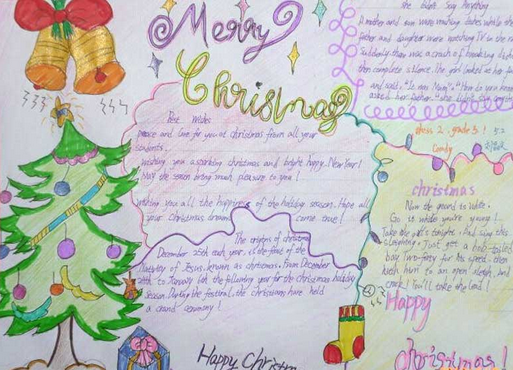 Merry
Christmas
she didn't say anything
A mother and son were washing dishes while the
father and daughter were watching TV in the
Suddenly there was a crash of breaking dishes
then complete silence. The girl looked at her
and said, "It was Mum."
asked her father. "She
Best Wishes
peace and love for you at christmas from all your
students.
wishing you a sparkling christmas and bright happy New Year!
May the season bring much pleasure to you!
wishing you all the happiness of the holiday season. Hope all
your Christmas dreams come true!
The origins of christmas
December 25th each year, is the feast of the
Nativity of Jesus, known as christmas. From December
24th to January 6th the following year for the christmas holiday
Season. During the festival, the christians have held
a grand ceremony!
class 2, grade 3!
Candy
christmas
Now the ground is white.
Go it while you're young!
Take the girls tonight. And sing this
sleighing. Just get a bob-tailed
bay two-forty for his speed then
hitch him to an open sleigh, and
crack! You'll take the lead!
Happy
Christmas!
Happy Christm